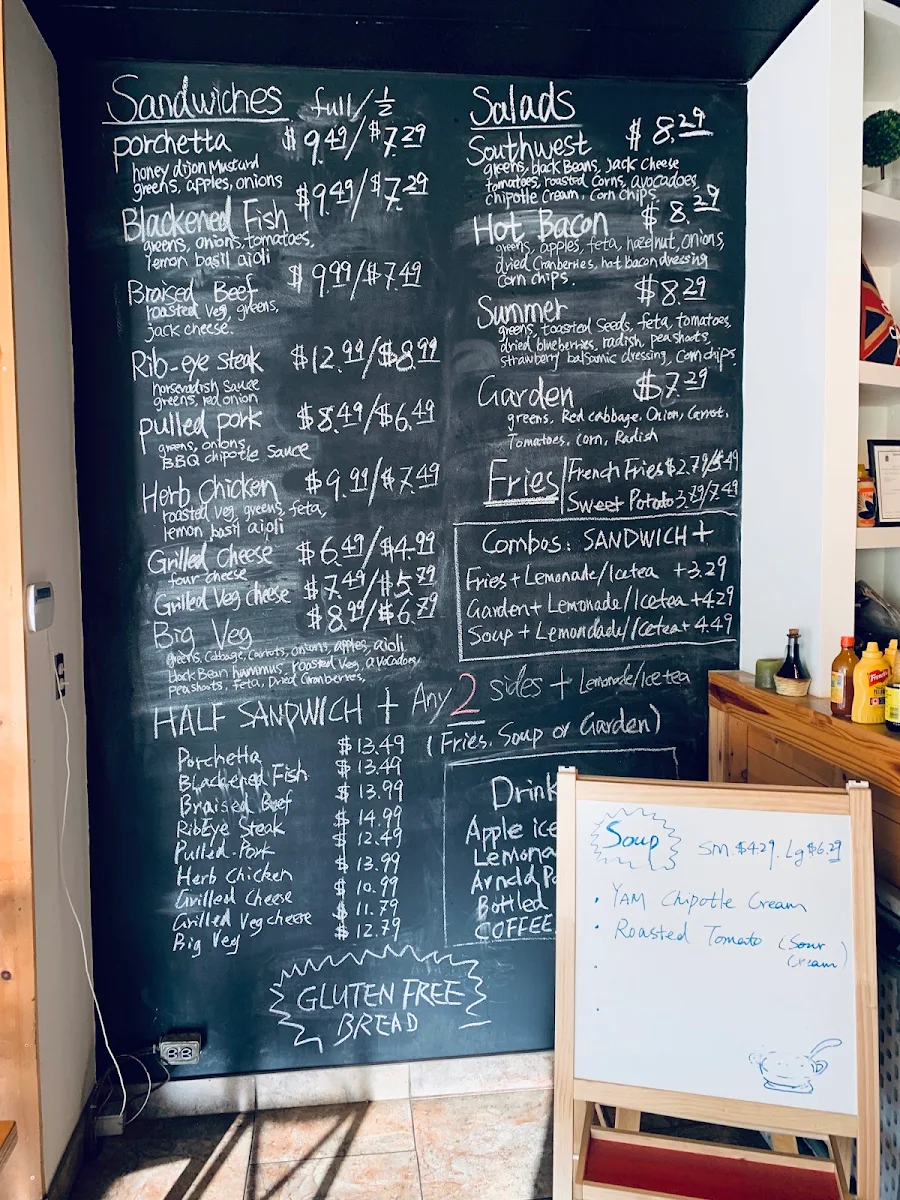 Sandwiches full/½
porchetta $9.49/$7.29
honey dijon Mustard
greens, apples, onions
Blackened Fish $9.49/$7.29
greens, onions, tomatoes,
lemon basil aioli
Braised Beef $9.99/$7.49
roasted veg, greens,
jack cheese.
Rib-eye steak $12.99/$8.99
horseradish sauce
greens, red onion
pulled pork $8.49/$6.49
greens, onions,
BBQ chipotle sauce
Herb Chicken $9.99/$7.49
roasted veg, greens, feta,
lemon basil aioli
Grilled Cheese $6.49/$4.99
four cheese
Grilled Veg cheese $7.49/$5.79
Big Veg $8.99/$6.79
greens, Cabbage, Carrots, onions, apples, aioli
black Bean hummus, roasted Veg, avocadoes,
peashoots, Feta, Dried Cranberries,
Salads
Southwest $8.29
greens, black Beans, Jack Cheese
tomatoes, roasted Corns, avocadoes,
chipotle Cream, corn chips.
Hot Bacon $8.29
greens, apples, feta, hazelnut, onions,
dried Cranberries, hot bacon dressing
corn chips.
Summer $8.29
greens, toasted seeds, feta, tomatoes,
dried blueberries, radish, peashoots,
strawberry balsamic dressing, Corn chips
Garden $7.29
greens, Red cabbage, Onion, Carrot,
Tomatoes, corn, Radish
Fries
French Fries $2.79/5.49
Sweet Potato 3.79/7.49
Combos: SANDWICH +
Fries + Lemonade/Icetea +3.29
Garden + Lemonade/Icetea +4.29
Soup + Lemondade/Icetea + 4.49
HALF SANDWICH + Any 2 sides + Lemonade/Icetea
(Fries, Soup or Garden)
Porchetta $13.49
Blackened Fish $13.49
Braised Beef $13.99
RibEye Steak $14.99
Pulled-Pork $12.49
Herb Chicken $13.99
Grilled Cheese $10.99
Grilled Vegcheese $11.79
Big Veg $12.79
Drink
Apple ice
Lemona
Arnold Pa
Bottled
COFFEE
GLUTEN FREE
BREAD
Soup SM $4.29. Lg $6.29
• YAM Chipotle Cream
• Roasted Tomato (Sour
Cream)
French's